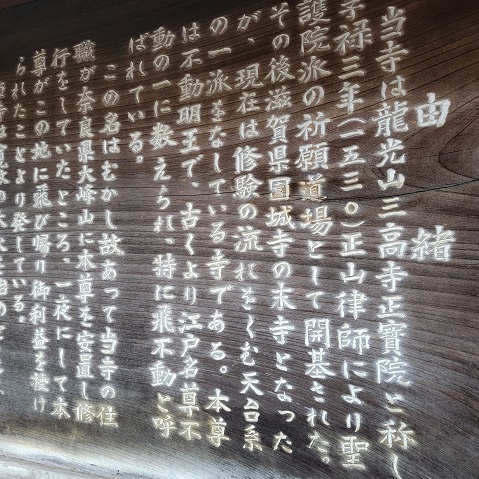 由緒
当寺は龍光山三高寺正寶院と称し
享禄三年(一五三〇)正山律師により聖
護院派の祈願道場として開基された。
その後滋賀県園城寺の末寺となった
が、現在は修験の流れをくむ天台系
の一派をなしている寺である。本尊
は不動明王で、古くより江戸名尊不
動の一に数えられ、特に飛不動と呼
ばれている。
この名はむかし故あって当寺の住
職が奈良県大峰山に本尊を安置し修
行をしていたところ、一夜にして本
尊がこの地に飛び帰り御利益を授け
られたことより発している。